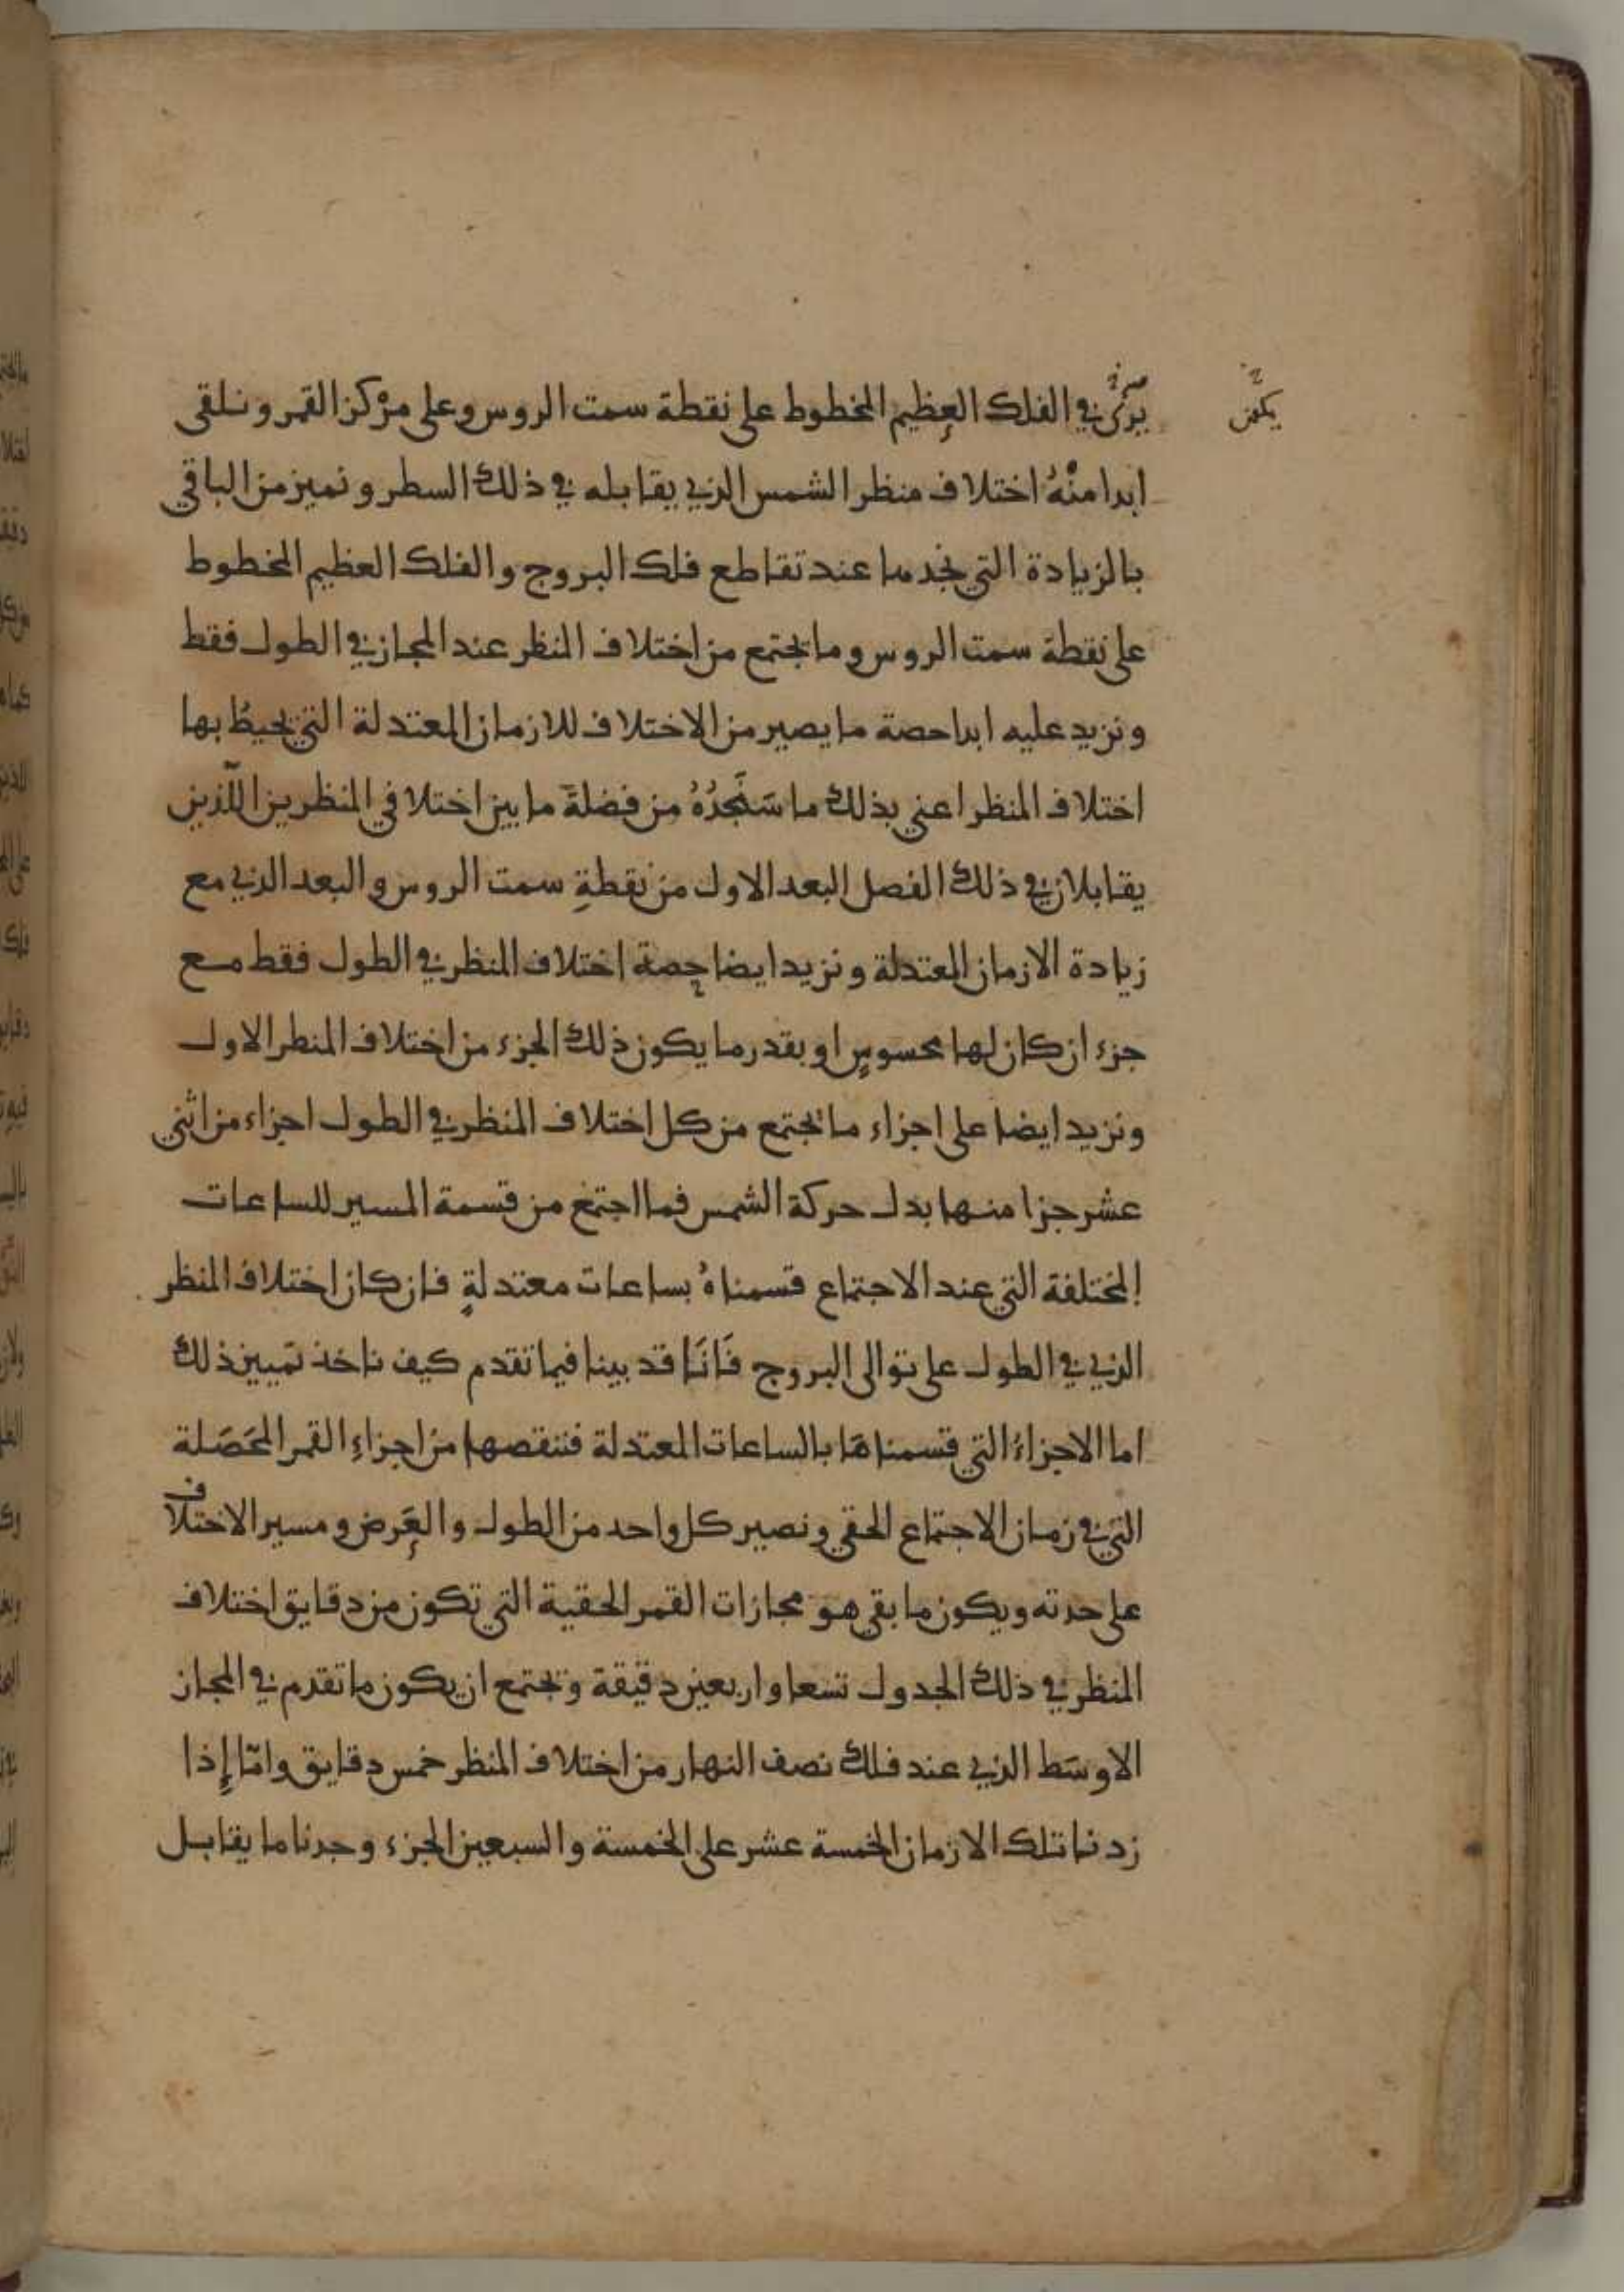 يكون
يرى في الفلك العظيم المخطوط على نقطة سمت الروس وعلى مركز القمر ونلقى
ابدا منْهُ اختلاف منظر الشمس الذي يقابله في ذلك السطر ونميز من الباقي
بالزيادة التي نجدها عند تقاطع فلك البروج والفلك العظيم المخطوط
على نقطة سمت الروس وما يجتمع من اختلاف المنظر عند المجاز في الطول فقط
ونزيد عليه ابدا حصة ما يصير من الاختلاف للازمان المعتدلة التي يحيطُ بها
اختلاف المنظر اعني بذلك ما سَنَجدُهُ من فضلة ما بين اختلافي المنظرين اللّذين
يقابلان في ذلك الفصل البعد الاول من نقطةِ سمت الروس والبعد الذي مع
زيادة الازمان المعتدلة ونزيد ايضا حصة اختلاف المنظر في الطول فقط مع
جزء ان كان لها محسوسٍ او بقدر ما يكون ذلك الجزء من اختلاف المنطر الاول
ونزيد ايضا على اجزاء ما يجتمع من كل اختلاف المنظر في الطول اجزاء من اثني
عشر جزا منها بدل حركة الشمس فما اجتمع من قسمة المسير للساعات
المختلفة التي عند الاجتماع قسمناهُ بساعات معتدلةٍ فان كان اختلاف المنظر
الذي في الطول على توالى البروج فَانَا قد بينا فيما تقدم كيف ناخذ تمييز ذلك
اما الاجزاءُ التي قسمناهَا بالساعات المعتدلة فننقصها من اجزاءِ القمر المحَصَلة
التي في زمان الاجتماع الحقي ونصير كل واحد من الطول والعَرض ومسير الاختلاف
على حدته ويكون ما بقي هو مجازات القمر الحقية التي تكون من دقايق اختلاف
المنظر في ذلك الجدول تسعا واربعين دقيقة ونجتمع ان يكون ما تقدم في المجاز
الاوسَط الذي عند فلك نصف النهار من اختلاف المنظر خمس دقايق وامّا إِذا
زدنا تلك الازمان الخمسة عشر على الخمسة والسبعين الجزء وجدنا ما يقابل